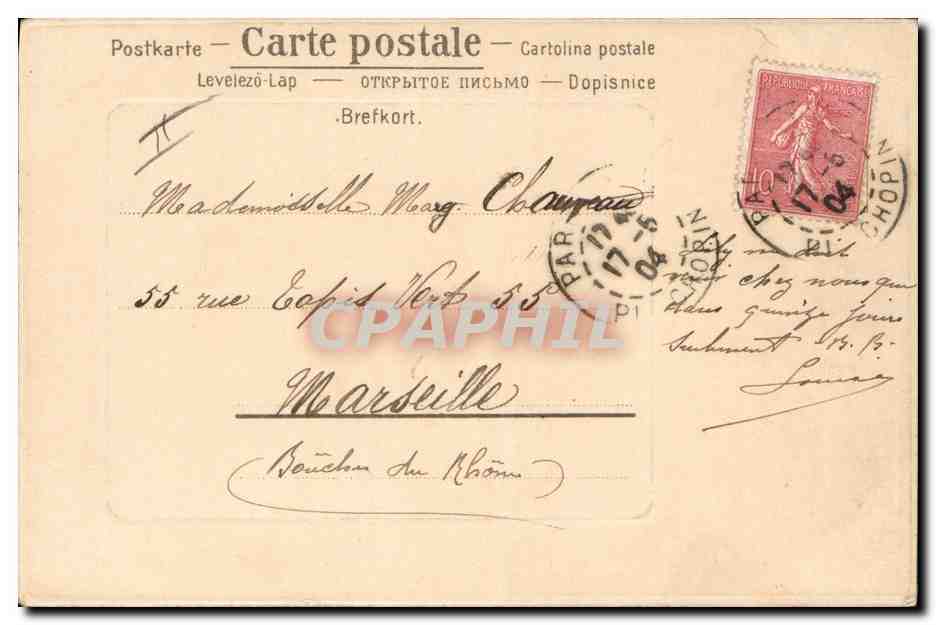 Postkarte — Carte postale — Cartolina postale
Levelező-Lap — ОТКРЫТОЕ ПИСЬМО — Dopisnice
Brefkort.
RÉPUBLIQUE FRANÇAISE
10
PARIS
17 -5
04
PL CHOPIN
Mademoiselle Marg Chauveau
PARIS
17 -5
04
PL CHOPIN
55 rue Tapis Vert 55
Marseille
(Bouches du Rhône)
chez nous que
dans quinze jours
seulement B. B.
Louise
CPAPHIL